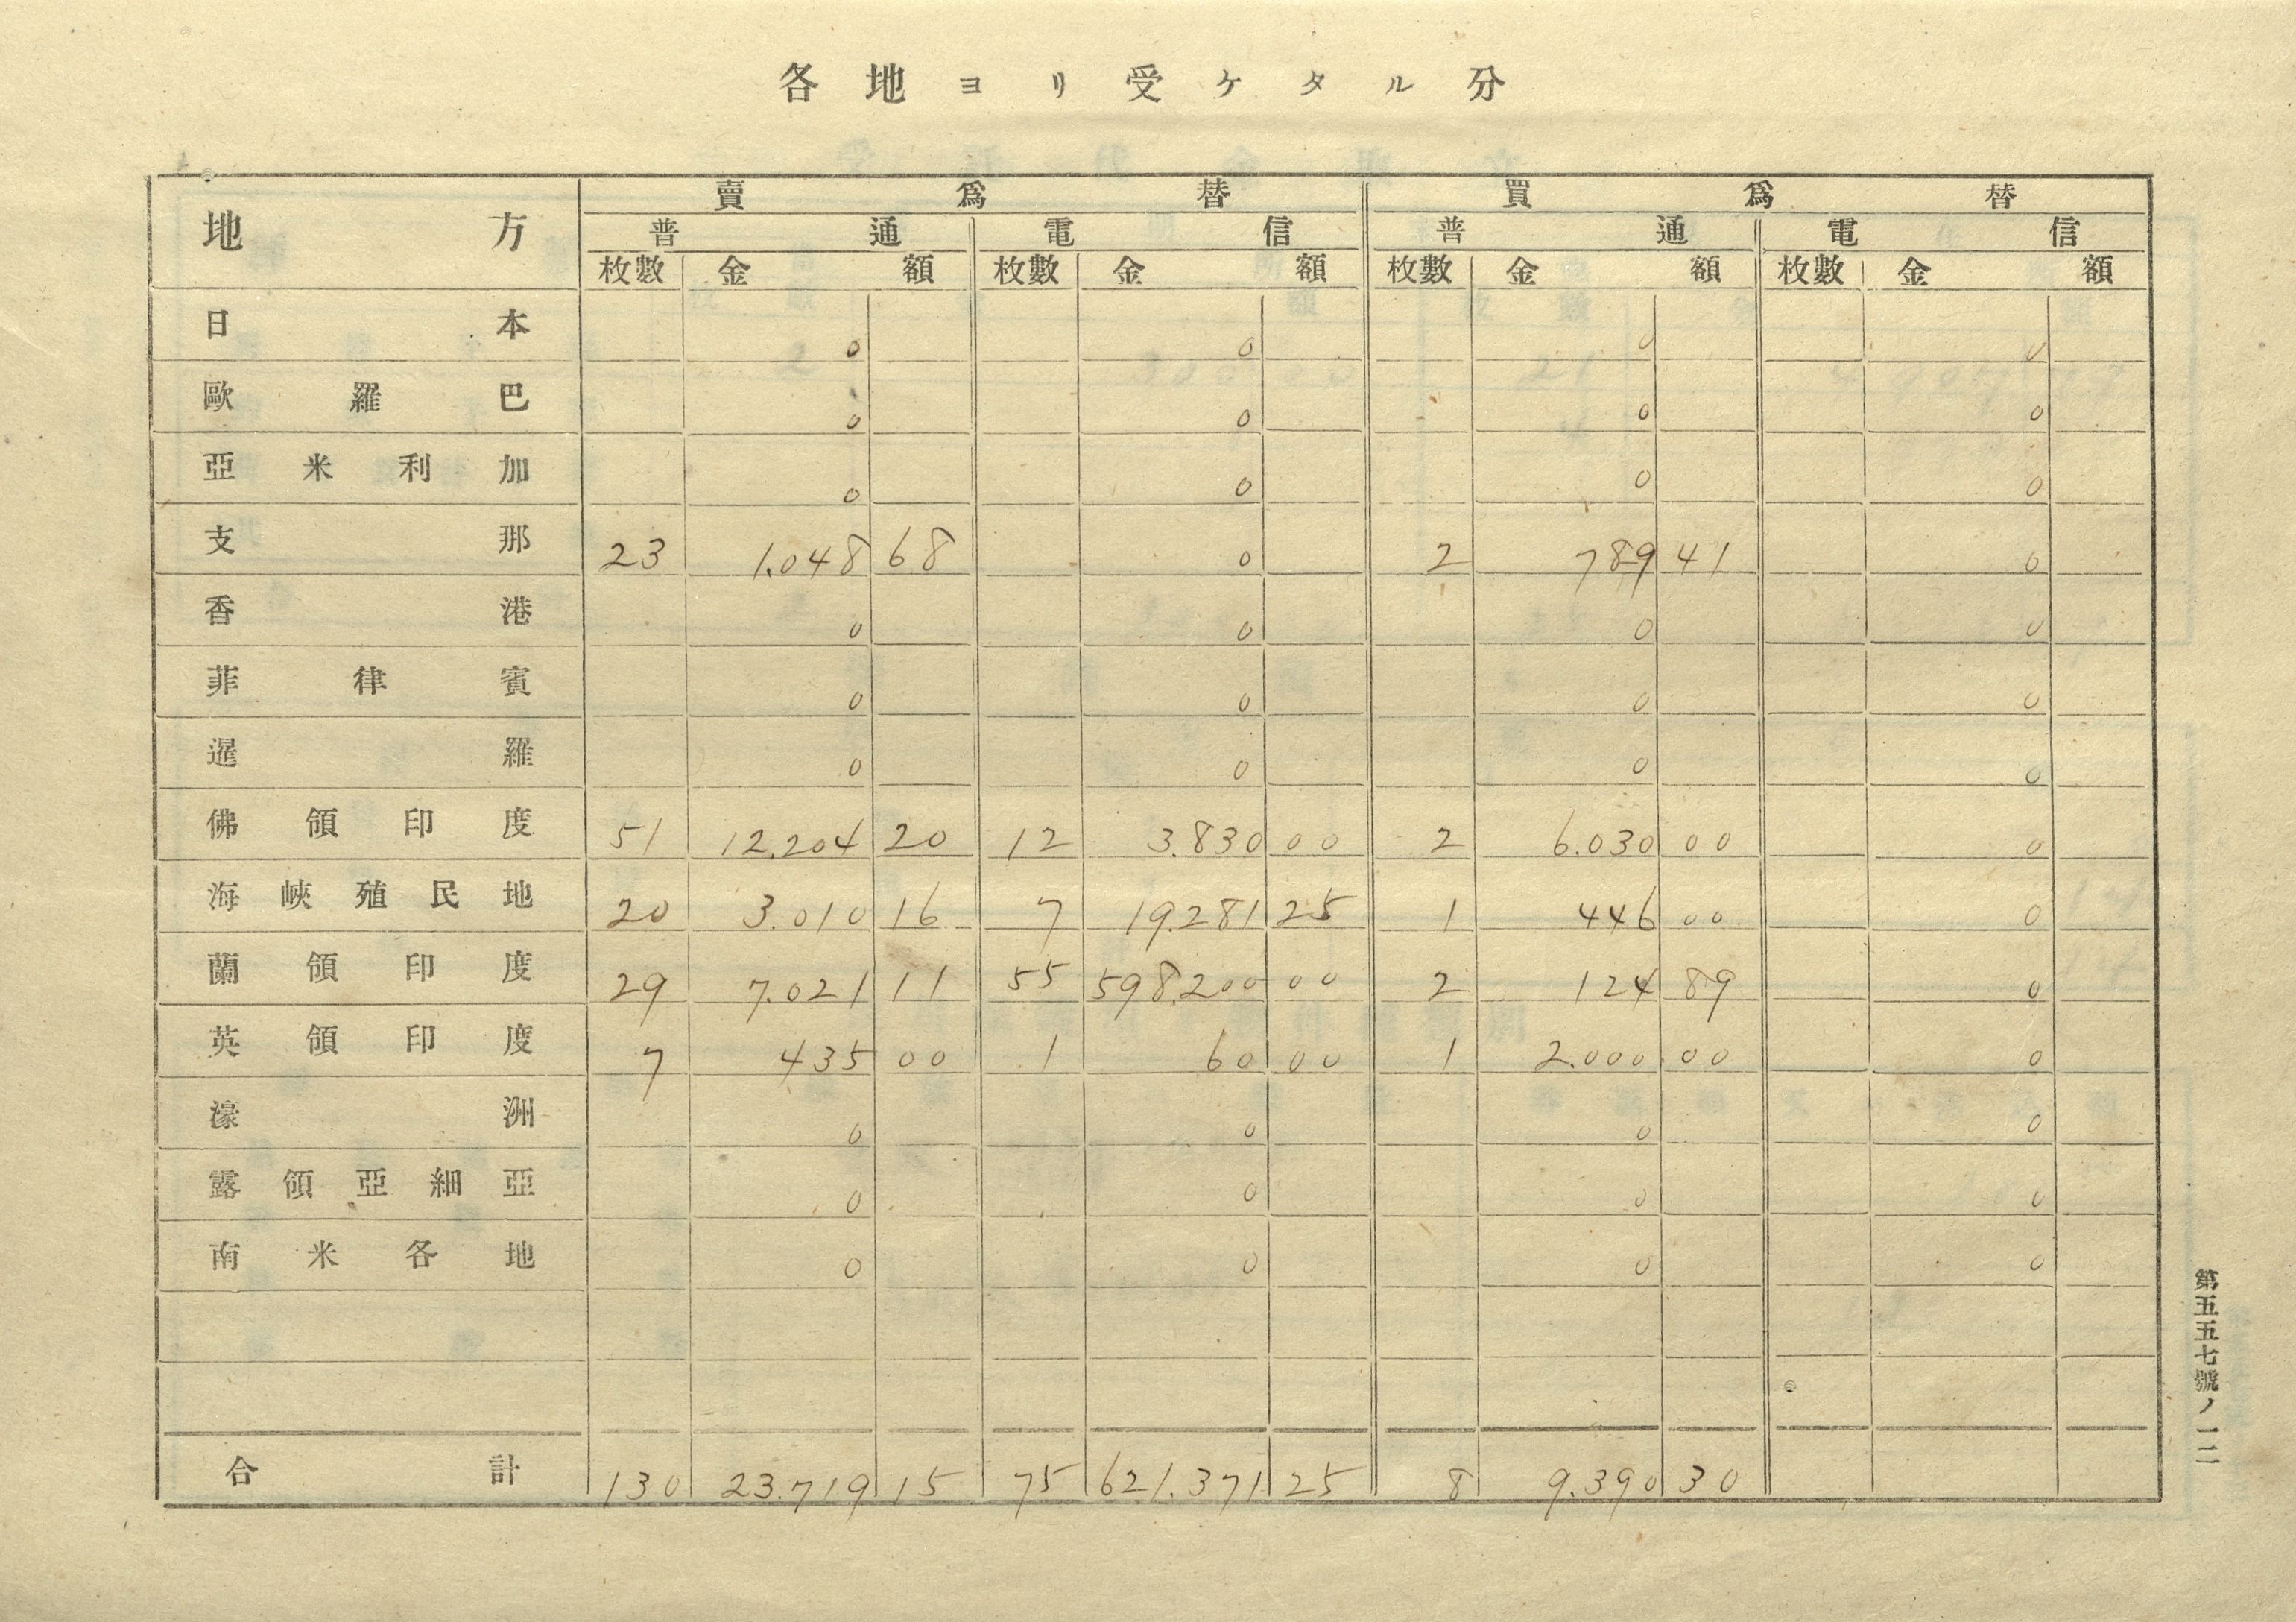 各地ヨリ受ケタル分
地方 賣爲替 買爲替
普通 電信 普通 電信
枚數 金額 枚數 金額 枚數 金額 枚數 金額
日本 0 0 0 0
歐羅巴 0 0 0 0
亞米利加 0 0 0 0
支那 23 1.048 68 0 2 789 41 0
香港 0 0 0 0
菲律賓 0 0 0 0
暹羅 0 0 0 0
佛領印度 51 12.204 20 12 3.830 00 2 6.030 00 0
海峽殖民地 20 3.010 16 7 19.281 25 1 446 00 0
蘭領印度 29 7.021 11 55 598.200 00 2 124 89 0
英領印度 7 435 00 1 60 00 1 2.000 00 0
濠洲 0 0 0 0
露領亞細亞 0 0 0 0
南米各地 0 0 0 0
合計 130 23.719 15 75 621.371 25 8 9.390 30
第五五七號ノ一二